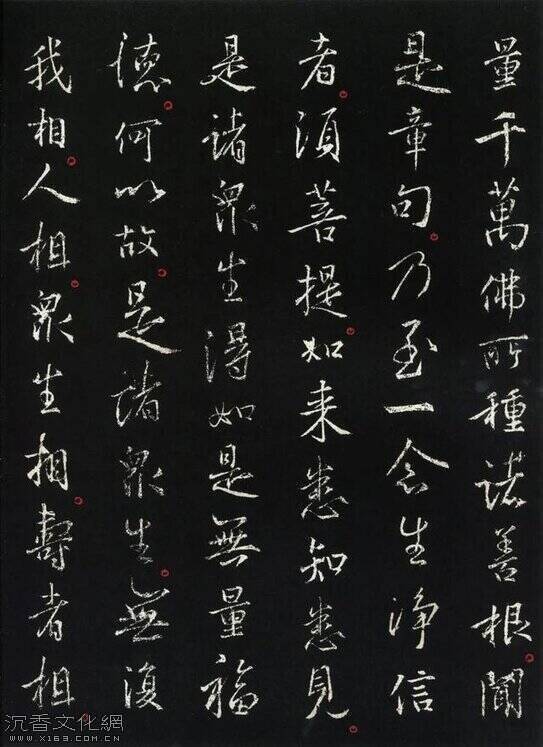 量千萬佛所種諸善根。聞
是章句。乃至一念生淨信
者。須菩提。如来悉知悉見。
是諸衆生得如是無量福
德。何以故。是諸衆生。無復
我相。人相。衆生相。壽者相。
沉香文化網
WWW.X169.COM.CN